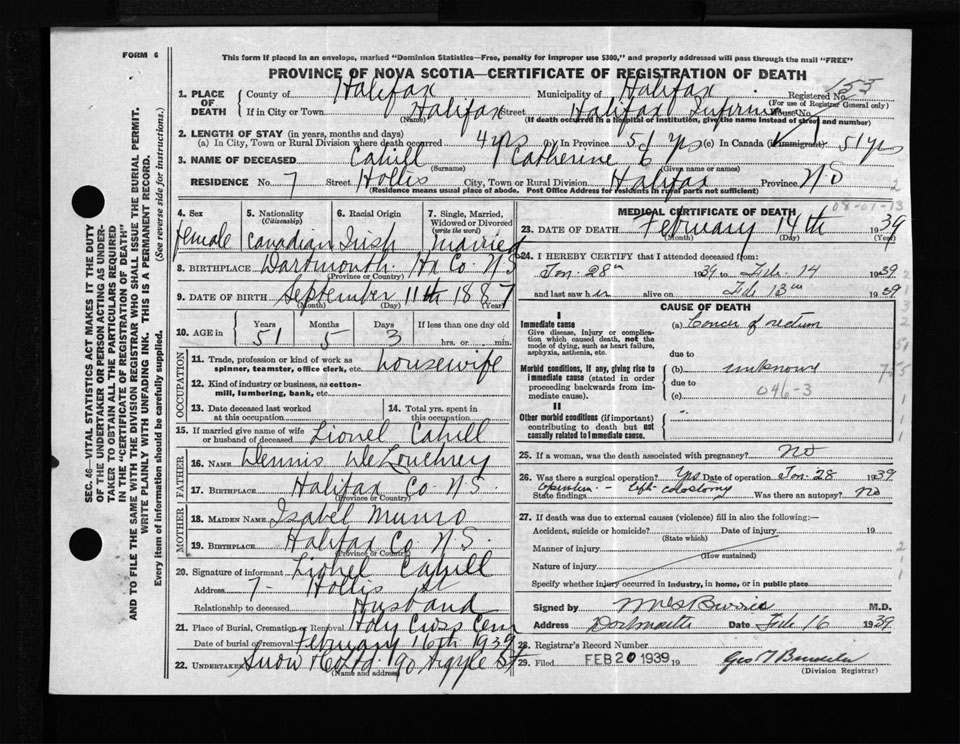 FORM 6
This form if placed in an envelope, marked "Dominion Statistics—Free, penalty for improper use $300," and properly addressed will pass through the mail "FREE"
PROVINCE OF NOVA SCOTIA—CERTIFICATE OF REGISTRATION OF DEATH
SEC. 46—VITAL STATISTICS ACT MAKES IT THE DUTY
OF THE UNDERTAKER OR PERSON ACTING AS UNDER-
TAKER TO OBTAIN ALL THE PARTICULARS REQUIRED
IN THE "CERTIFICATE OF REGISTRATION OF DEATH"
AND TO FILE THE SAME WITH THE DIVISION REGISTRAR WHO SHALL ISSUE THE BURIAL PERMIT.
WRITE PLAINLY WITH UNFADING INK. THIS IS A PERMANENT RECORD.
Every item of information should be carefully supplied. (See reverse side for instructions.)
1. PLACE OF DEATH County of Halifax Municipality of Halifax Registered No. 155
(For use of Registrar General only)
If in City or Town Halifax Street Halifax House No.
(Name) (If death occurred in a hospital or institution, give the name instead of street and number)
2. LENGTH OF STAY (in years, months and days)
(a) In City, Town or Rural Division where death occurred 4 yrs In Province 51 yrs (c) In Canada (if immigrant) 51 yrs
3. NAME OF DECEASED Cahill Catherine
(Surname) (Given name or names)
RESIDENCE No. 7 Street Hollis City, Town or Rural Division Halifax Province NS
(Residence means usual place of abode. Post Office Address for residents in rural parts not sufficient)
08-01-13
4. Sex female
5. Nationality (Citizenship) Canadian
6. Racial Origin Irish
7. Single, Married, Widowed or Divorced (write the word) Married
8. BIRTHPLACE Dartmouth Hx Co. N.S
(Province or Country)
9. DATE OF BIRTH September 11th 1887
(Month) (Day) (Year)
10. AGE in Years 51 Months 5 Days 3 If less than one day old
hrs. or min.
OCCUPATION
11. Trade, profession or kind of work as spinner, teamster, office clerk, etc. housewife
12. Kind of industry or business, as cotton-mill, lumbering, bank, etc.
13. Date deceased last worked at this occupation
14. Total yrs. spent in this occupation
15. If married give name of wife or husband of deceased Lionel Cahill
FATHER
16. NAME Dennis
17. BIRTHPLACE Halifax Co. N.S.
(Province or Country)
MOTHER
18. MAIDEN NAME Isabel Munro
19. BIRTHPLACE Halifax Co. N.S.
(Province or Country)
20. Signature of informant Lionel Cahill
Address 7- Hollis St
Relationship to deceased Husband
21. Place of Burial, Cremation or Removal Holy Cross Cem
Date of burial or removal February 16th 1939
22. UNDERTAKER Snow & Co Ltd. 90 Argyle St
(Name and address)
MEDICAL CERTIFICATE OF DEATH
23. DATE OF DEATH February 14th 1939
(Month) (Day) (Year)
24. I HEREBY CERTIFY that I attended deceased from:
Jan. 28th 1939 to Feb. 14 1939
and last saw her alive on Feb 13th 1939
CAUSE OF DEATH
I
Immediate cause (a) Cancer of rectum
Give disease, injury or complication which caused death, not the mode of dying, such as heart failure, asphyxia, asthenia, etc.
due to
Morbid conditions, if any, giving rise to immediate cause (stated in order proceeding backwards from immediate cause). (b) unknown
due to
(c) 046-3
II
Other morbid conditions (if important) contributing to death but not causally related to immediate cause.
25. If a woman, was the death associated with pregnancy? No
26. Was there a surgical operation? Yes Date of operation Jan. 28 1939
State findings Was there an autopsy? No
27. If death was due to external causes (violence) fill in also the following:—
Accident, suicide or homicide? Date of injury 19
(State which)
Manner of injury
(How sustained)
Nature of injury
Specify whether injury occurred in industry, in home, or in public place
Signed by M.D.
Address Dartmouth Date Feb 16 1939
28. Registrar's Record Number
29. Filed FEB 20 1939 19
(Division Registrar)